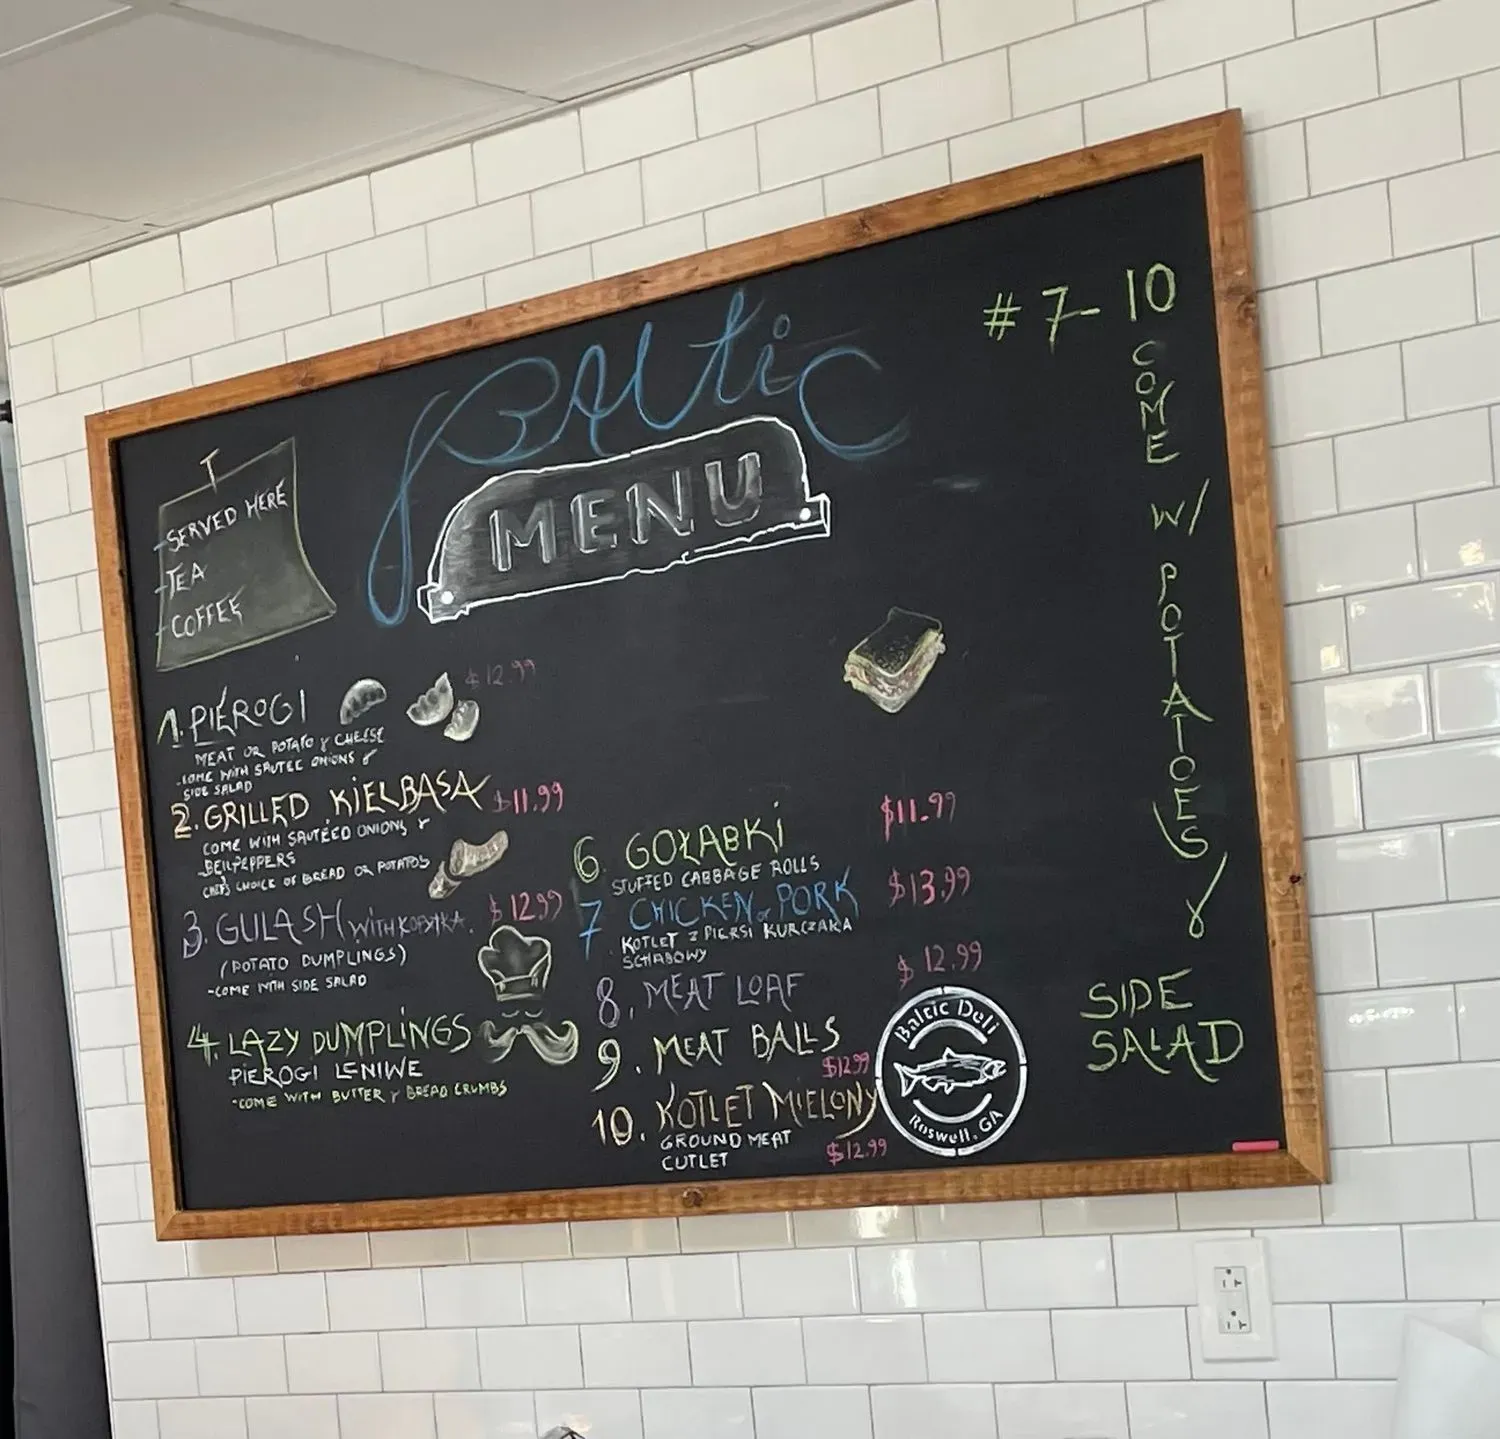 Baltic
MENU
- SERVED HERE
- TEA
- COFFEE
1. PIEROGI $12.99
MEAT OR POTATO & CHEESE
- COME WITH SAUTEE ONIONS &
SIDE SALAD
2. GRILLED KIELBASA $11.99
COME WITH SAUTÉED ONIONS &
BELLPEPPERS
CHEF'S CHOICE OF BREAD OR POTATOS
3. GULASH WITH KOPYTKA. $12.99
(POTATO DUMPLINGS)
- COME WITH SIDE SALAD
4. LAZY DUMPLINGS
PIEROGI LENIWE
- COME WITH BUTTER & BREAD CRUMBS
6 GOŁĄBKI $11.99
STUFFED CABBAGE ROLLS
7 CHICKEN or PORK $13.99
KOTLET Z PIERSI KURCZAKA
SCHABOWY
8. MEAT LOAF $12.99
9. MEAT BALLS
$12.99
10. KOTLET MIELONY
GROUND MEAT
CUTLET $12.99
Baltic Deli
Roswell, GA
#7-10
COME
W/
POTATOES
&
SIDE
SALAD